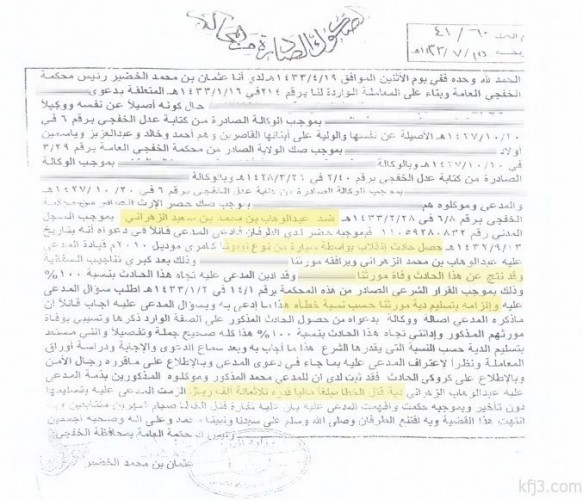 ٤١/٦٠
صكوك الصادرة من المحاكم
الحمد لله وحده ففي يوم الاثنين الموافق ١٤٣٣/٤/١٩هـ لدي أنا عثمان بن محمد الخضير رئيس محكمة
الخفجي العامة وبناء على المعاملة الواردة لنا برقم ٢١٤ في ١٤٣٣/١/١٦هـ المتعلقة بدعوى
حال كونه أصيلاً عن نفسه ووكيلاً
بموجب الوكالة الصادرة من كتابة عدل الخفجي برقم ٦ في
١٤٢٧/١٠/٢٠هـ الأصيلة عن نفسها والولية على أبنائها القاصرين وهم أحمد وخالد وعبدالعزيز وياسمين
أولاد بموجب صك الولاية الصادر من محكمة الخفجي العامة برقم ٣/٢٩
في ١٤٢٧/١٠/ هـ وبالوكالة بموجب الوكالة
الصادرة من كتابة عدل الخفجي برقم ٢/٤٠ في ١٤٢٨/٣/٢١هـ وبالوكالة
بموجب الوكالة الصادرة من كتابة عدل الخفجي برقم ٦ في ١٤٢٧/١٠/٢٠هـ
والمدعي وموكلوه هم بموجب صك حصر الإرث الصادر من محكمة
الخفجي برقم ٦/٨ في ١٤٣٣/٢/٢٨هـ ضد عبدالوهاب بن محمد بن سعيد الزهراني بموجب السجل
المدني رقم ١١٠٥٩٢٨٠٨٣٢ فبموجبه حضر لدي الطرفان فادعى المدعي قائلاً في دعواه أنه بتاريخ
١٤٣٢/٩/١٣هـ حصل حادث إنقلاب بواسطة سيارة من نوع تويوتا كامري موديل ٢٠١٠م قيادة المدعى
عليه عبدالوهاب بن محمد الزهراني ويرافقه مورثنا وذلك بعد كبري
وقد نتج عن هذا الحادث وفاة مورثنا وقد ادين المدعى عليه تجاه هذا الحادث بنسبة ١٠٠%
وذلك بموجب القرار الشرعي الصادر من هذه المحكمة برقم ١٤/١ في ١٤٣٣/١/٢هـ أطلب سؤال المدعى
عليه وإلزامه بتسليم دية مورثنا حسب نسبة خطأه هذا ما ادعي به وبسؤال المدعى عليه اجاب قائلاً ان
ماذكره المدعي اصالة ووكالة بدعواه من حصول الحادث المذكور على الصفة الوارد ذكرها وتسببي بوفاة
مورثهم المذكور وإدانتي تجاه هذا الحادث بنسبة ١٠٠% هذا كله صحيح جملة وتفصيلاً وانني مستعد
بتسليم الدية حسب النسبة التي يقدرها الشرع هذا ما أجاب به وبعد سماع الدعوى والإجابة ودراسة أوراق
المعاملة ونظراً لاعتراف المدعى عليه بما جاء في دعوى المدعي وبالإطلاع على ماقرره رجال الأمن
وبالإطلاع على كروكي الحادث فقد ثبت لدي ان للمدعي محمد المذكور وموكلوه المذكورين بذمة المدعى
عليه عبدالوهاب الزهراني دية قتل الخطأ مبلغاً مالياً قدره ثلاثمائة الف ريال الزمت المدعى عليه بتسليمها
دون تأخير وبموجبه حكمت وافهمت المدعى عليه بان عليه كفارة قتل الخطأ صيام شهرين متتابعين وبه
انتهت هذا القضية وبه اقتنع الطرفان وصلى الله وسلم على سيدنا ونبينا محمد وعلى آله وصحبه اجمعين
رئيس محكمة العامة بمحافظة الخفجي
عثمان بن محمد الخضير
kfj3.com